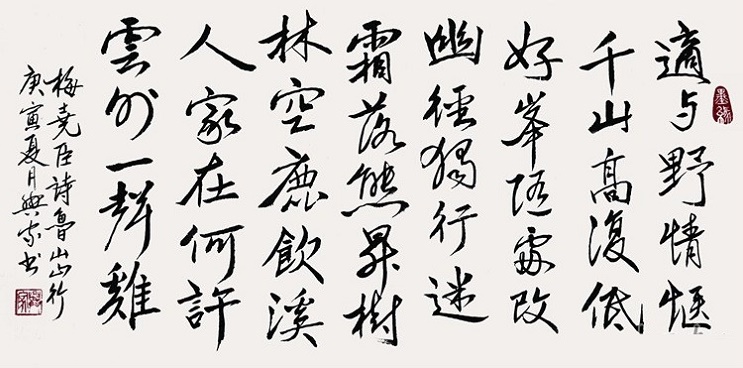 適与野情惬
千山高復低
好峯随處改
幽徑獨行迷
霜落熊昇樹
林空鹿飲溪
人家在何許
雲外一聲雞
梅堯臣詩魯山山行
庚寅夏月興家书